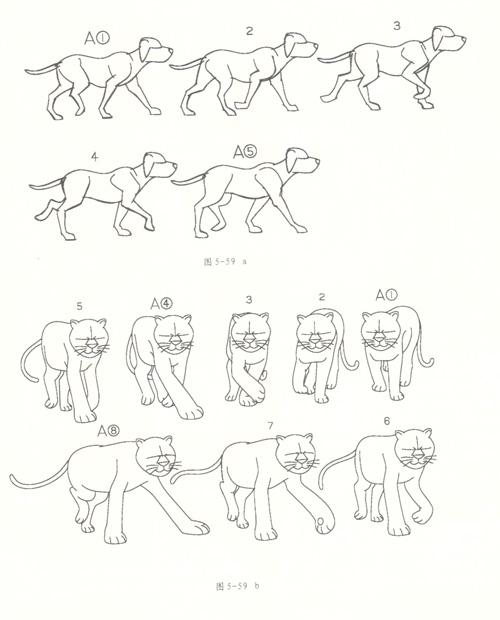 A① 2 3
4 A⑤
图 5-59 a
5 A④ 3 2 A①
A⑧ 7 6
图 5-59 b